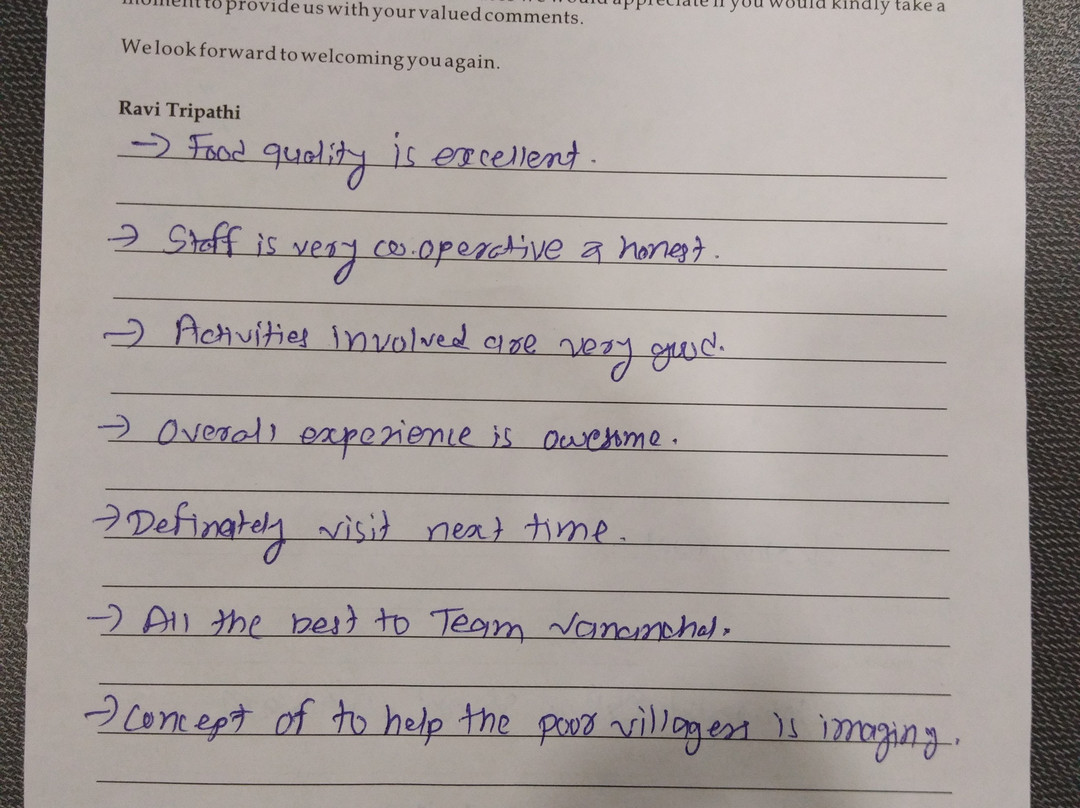 moment to provide us with your valued comments. we would appreciate if you would kindly take a
We look forward to welcoming you again.
Ravi Tripathi
→ Food quality is excellent.
→ Staff is very co.operative & honest.
→ Activities involved are very good.
→ Overall experience is awesome.
→ Definately visit next time.
→ All the best to Team Vananchal.
→ Concept of to help the poor villagers is imaging.